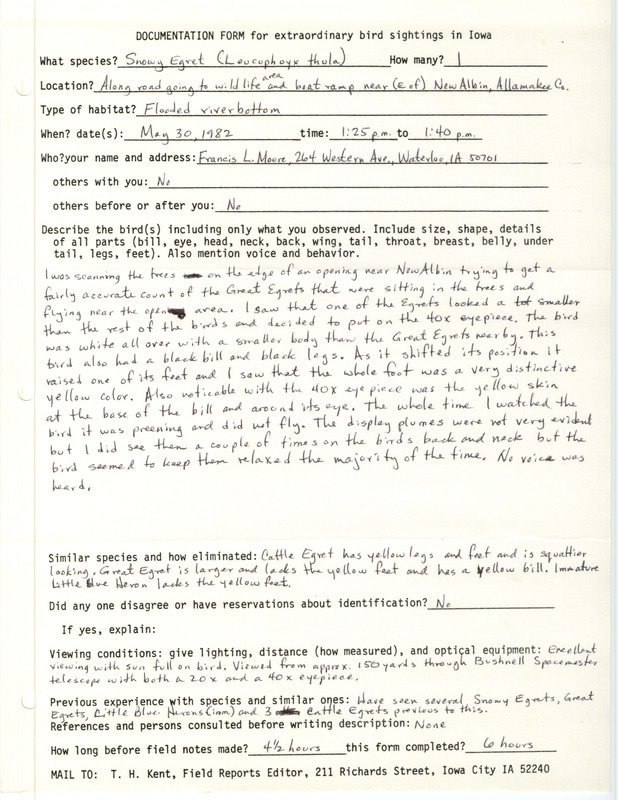 DOCUMENTATION FORM for extraordinary bird sightings in Iowa
What species? Snowy Egret (Leucophoyx thula) How many? 1
Location? Along road going to wild life area and boat ramp near (E of) New Albin, Allamakee Co.
Type of habitat? Flooded riverbottom
When? date(s): May 30, 1982 time: 1:25 p.m. to 1:40 p.m.
Who? your name and address: Francis L. Moore, 264 Western Ave., Waterloo, IA 50701
others with you: No
others before or after you: No
Describe the bird(s) including only what you observed. Include size, shape, details
of all parts (bill, eye, head, neck, back, wing, tail, throat, breast, belly, under
tail, legs, feet). Also mention voice and behavior.
I was scanning the trees on the edge of an opening near New Albin trying to get a
fairly accurate count of the Great Egrets that were sitting in the trees and
flying near the open area. I saw that one of the Egrets looked a lot smaller
than the rest of the birds and decided to put on the 40x eyepiece. The bird
was white all over with a smaller body than the Great Egrets nearby. This
bird also had a black bill and black legs. As it shifted its position it
raised one of its feet and I saw that the whole foot was a very distinctive
yellow color. Also noticable with the 40x eye piece was the yellow skin
at the base of the bill and around its eye. The whole time I watched the
bird it was preening and did not fly. The display plumes were not very evident
but I did see them a couple of times on the birds back and neck but the
bird seemed to keep them relaxed the majority of the time. No voice was
heard.
Similar species and how eliminated: Cattle Egret has yellow legs and feet and is squattier
looking. Great Egret is larger and lacks the yellow feet and has a yellow bill. Immature
Little Blue Heron lacks the yellow feet.
Did any one disagree or have reservations about identification? No
If yes, explain:
Viewing conditions: give lighting, distance (how measured), and optical equipment: Excellent
viewing with sun full on bird. Viewed from approx. 150 yards through Bushnell Spacemaster
telescope with both a 20x and a 40x eyepiece.
Previous experience with species and similar ones: Have seen several Snowy Egrets, Great
Egrets, Little Blue Herons (imm.) and 3 Cattle Egrets previous to this.
References and persons consulted before writing description: None
How long before field notes made? 4½ hours this form completed? 6 hours
MAIL TO: T. H. Kent, Field Reports Editor, 211 Richards Street, Iowa City IA 52240